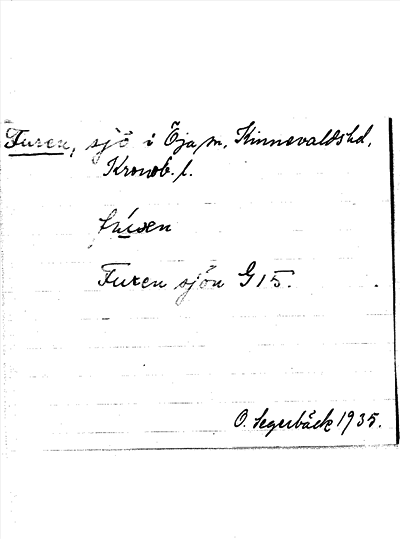 Furen, sjö i Öja sn, Kinnevaldshd,
Kronob. l.
Furen sjön G 15.
O. Segerbäck 1935.